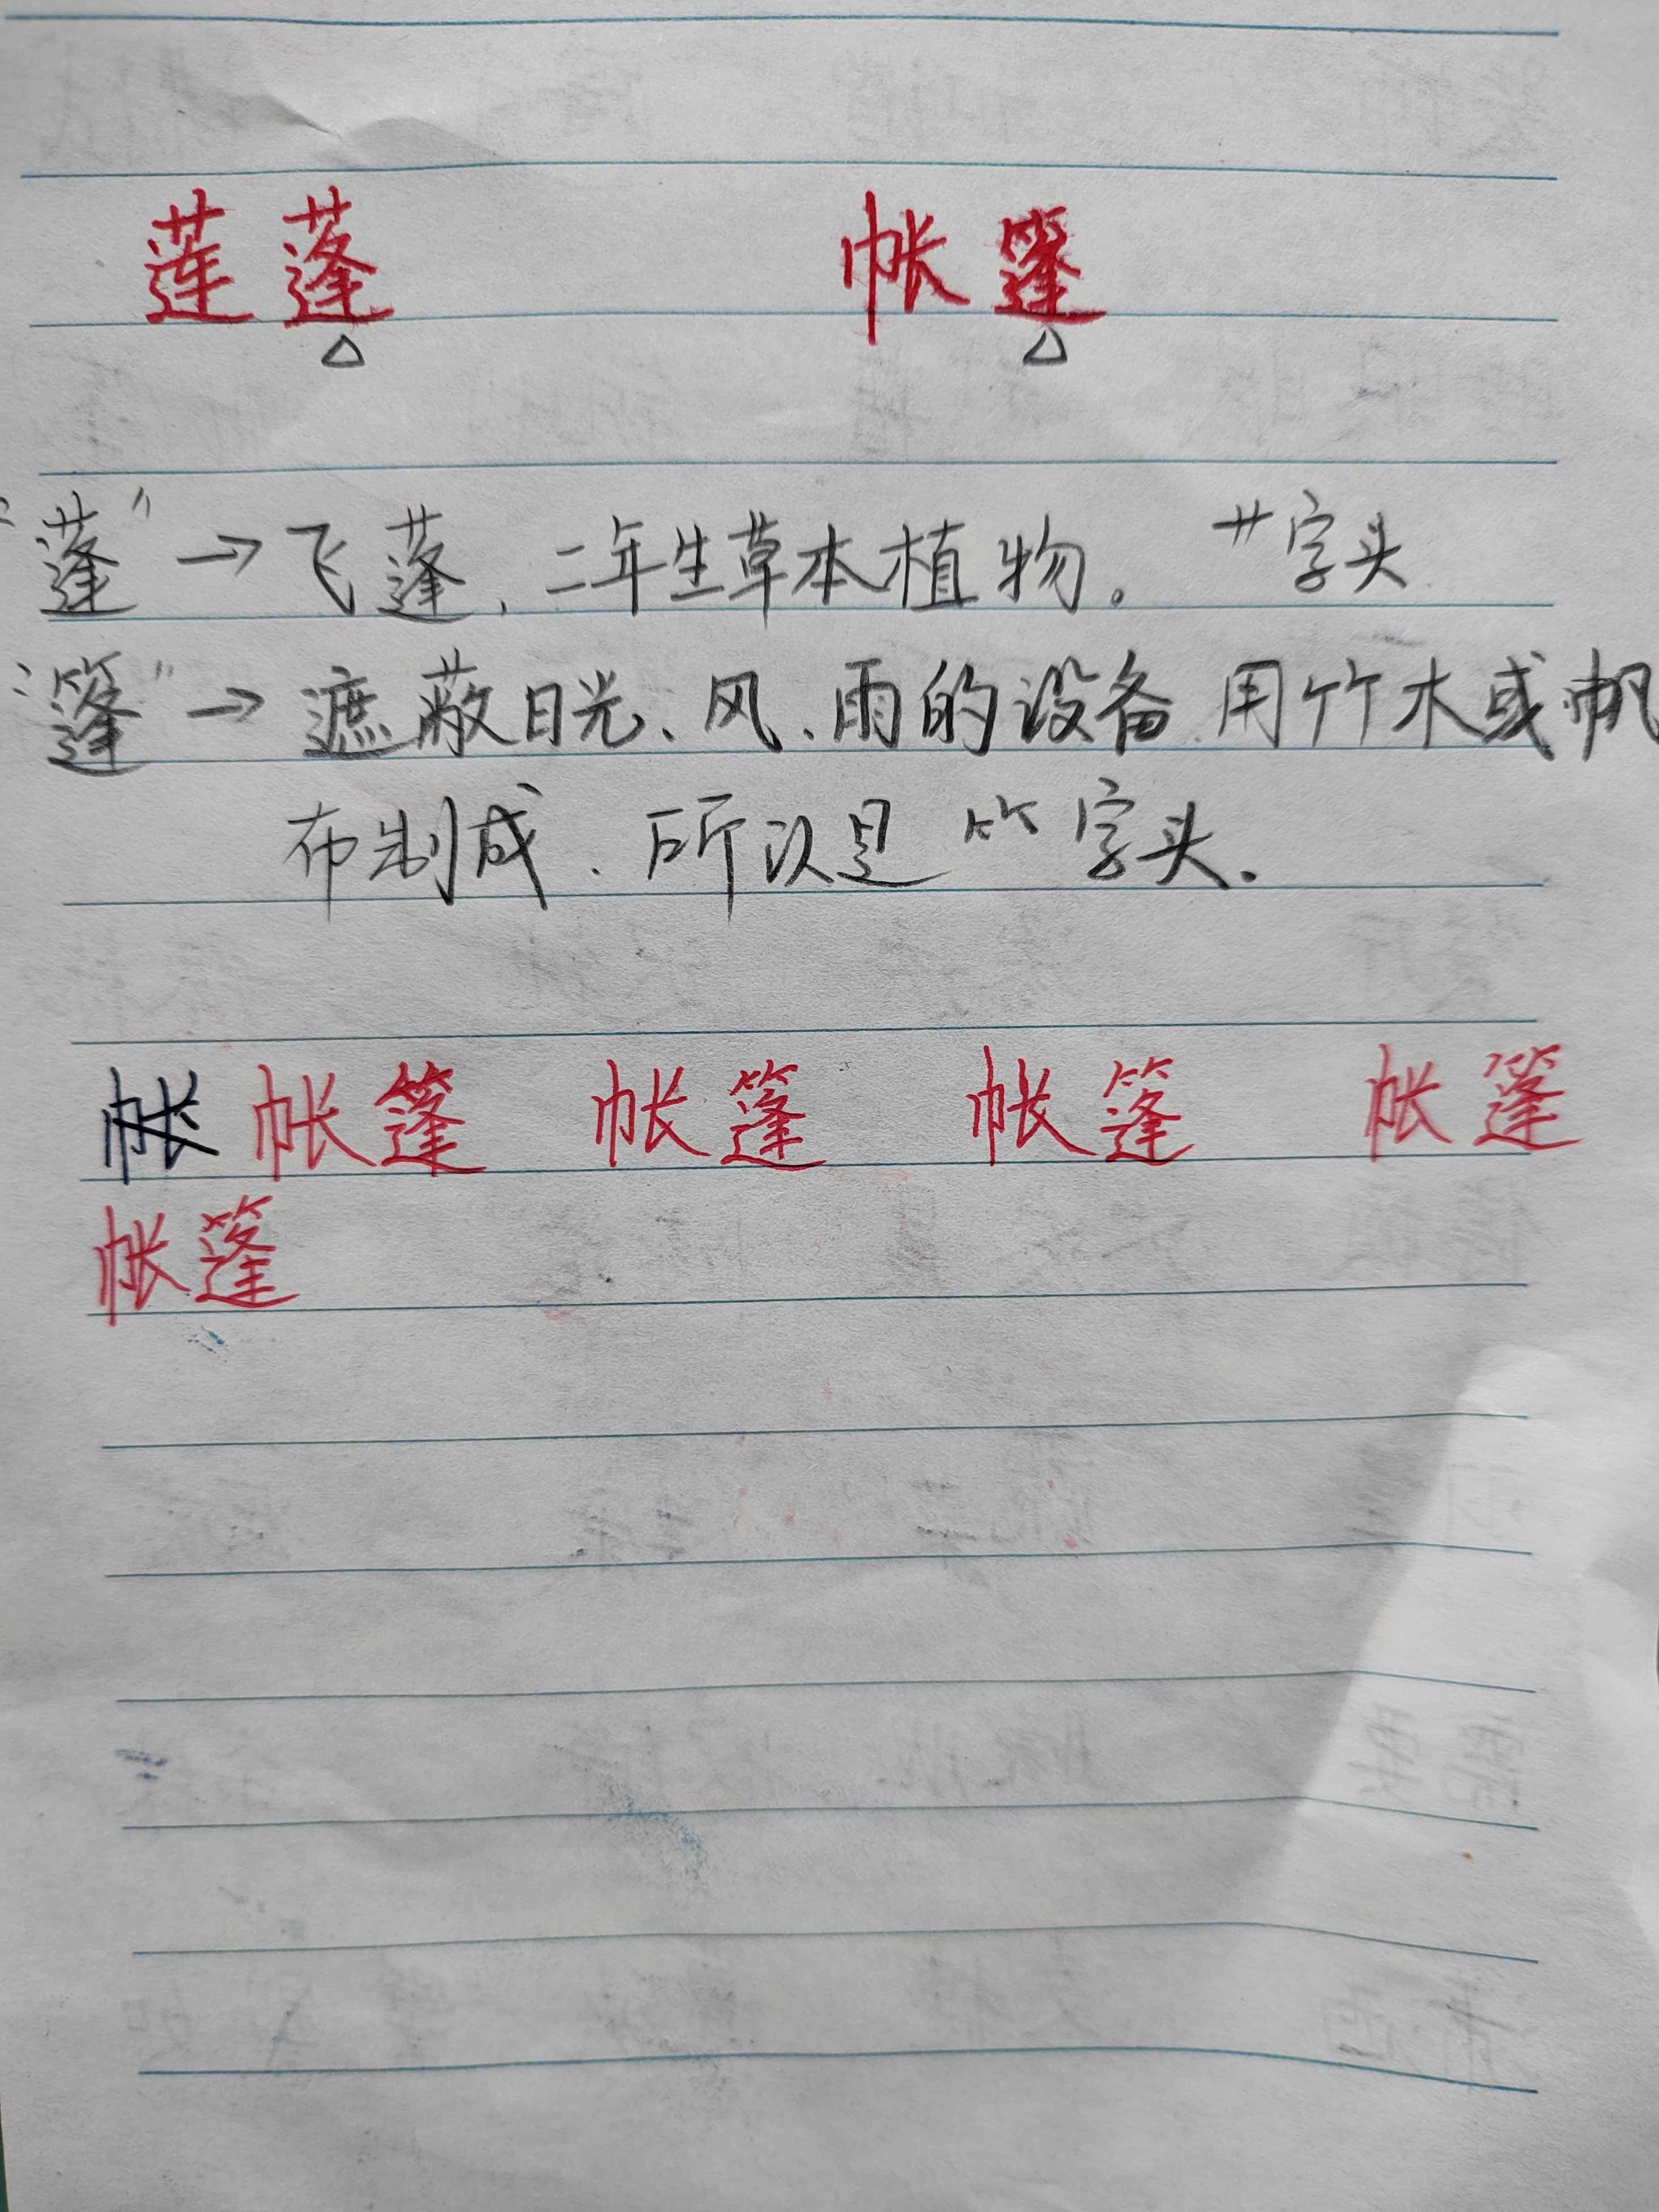 莲蓬 帐篷
“蓬”→飞蓬，二年生草本植物。 艹字头
“篷”→遮蔽日光、风、雨的设备 用竹木或帆
布制成．所以是 ⺮字头．
帐 帐篷 帐篷 帐篷 帐篷
帐篷